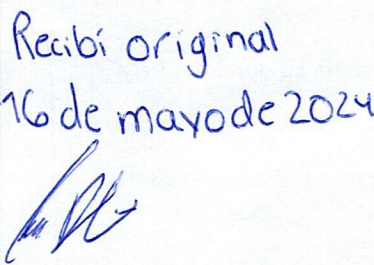 Recibí original
16 de mayo de 2024